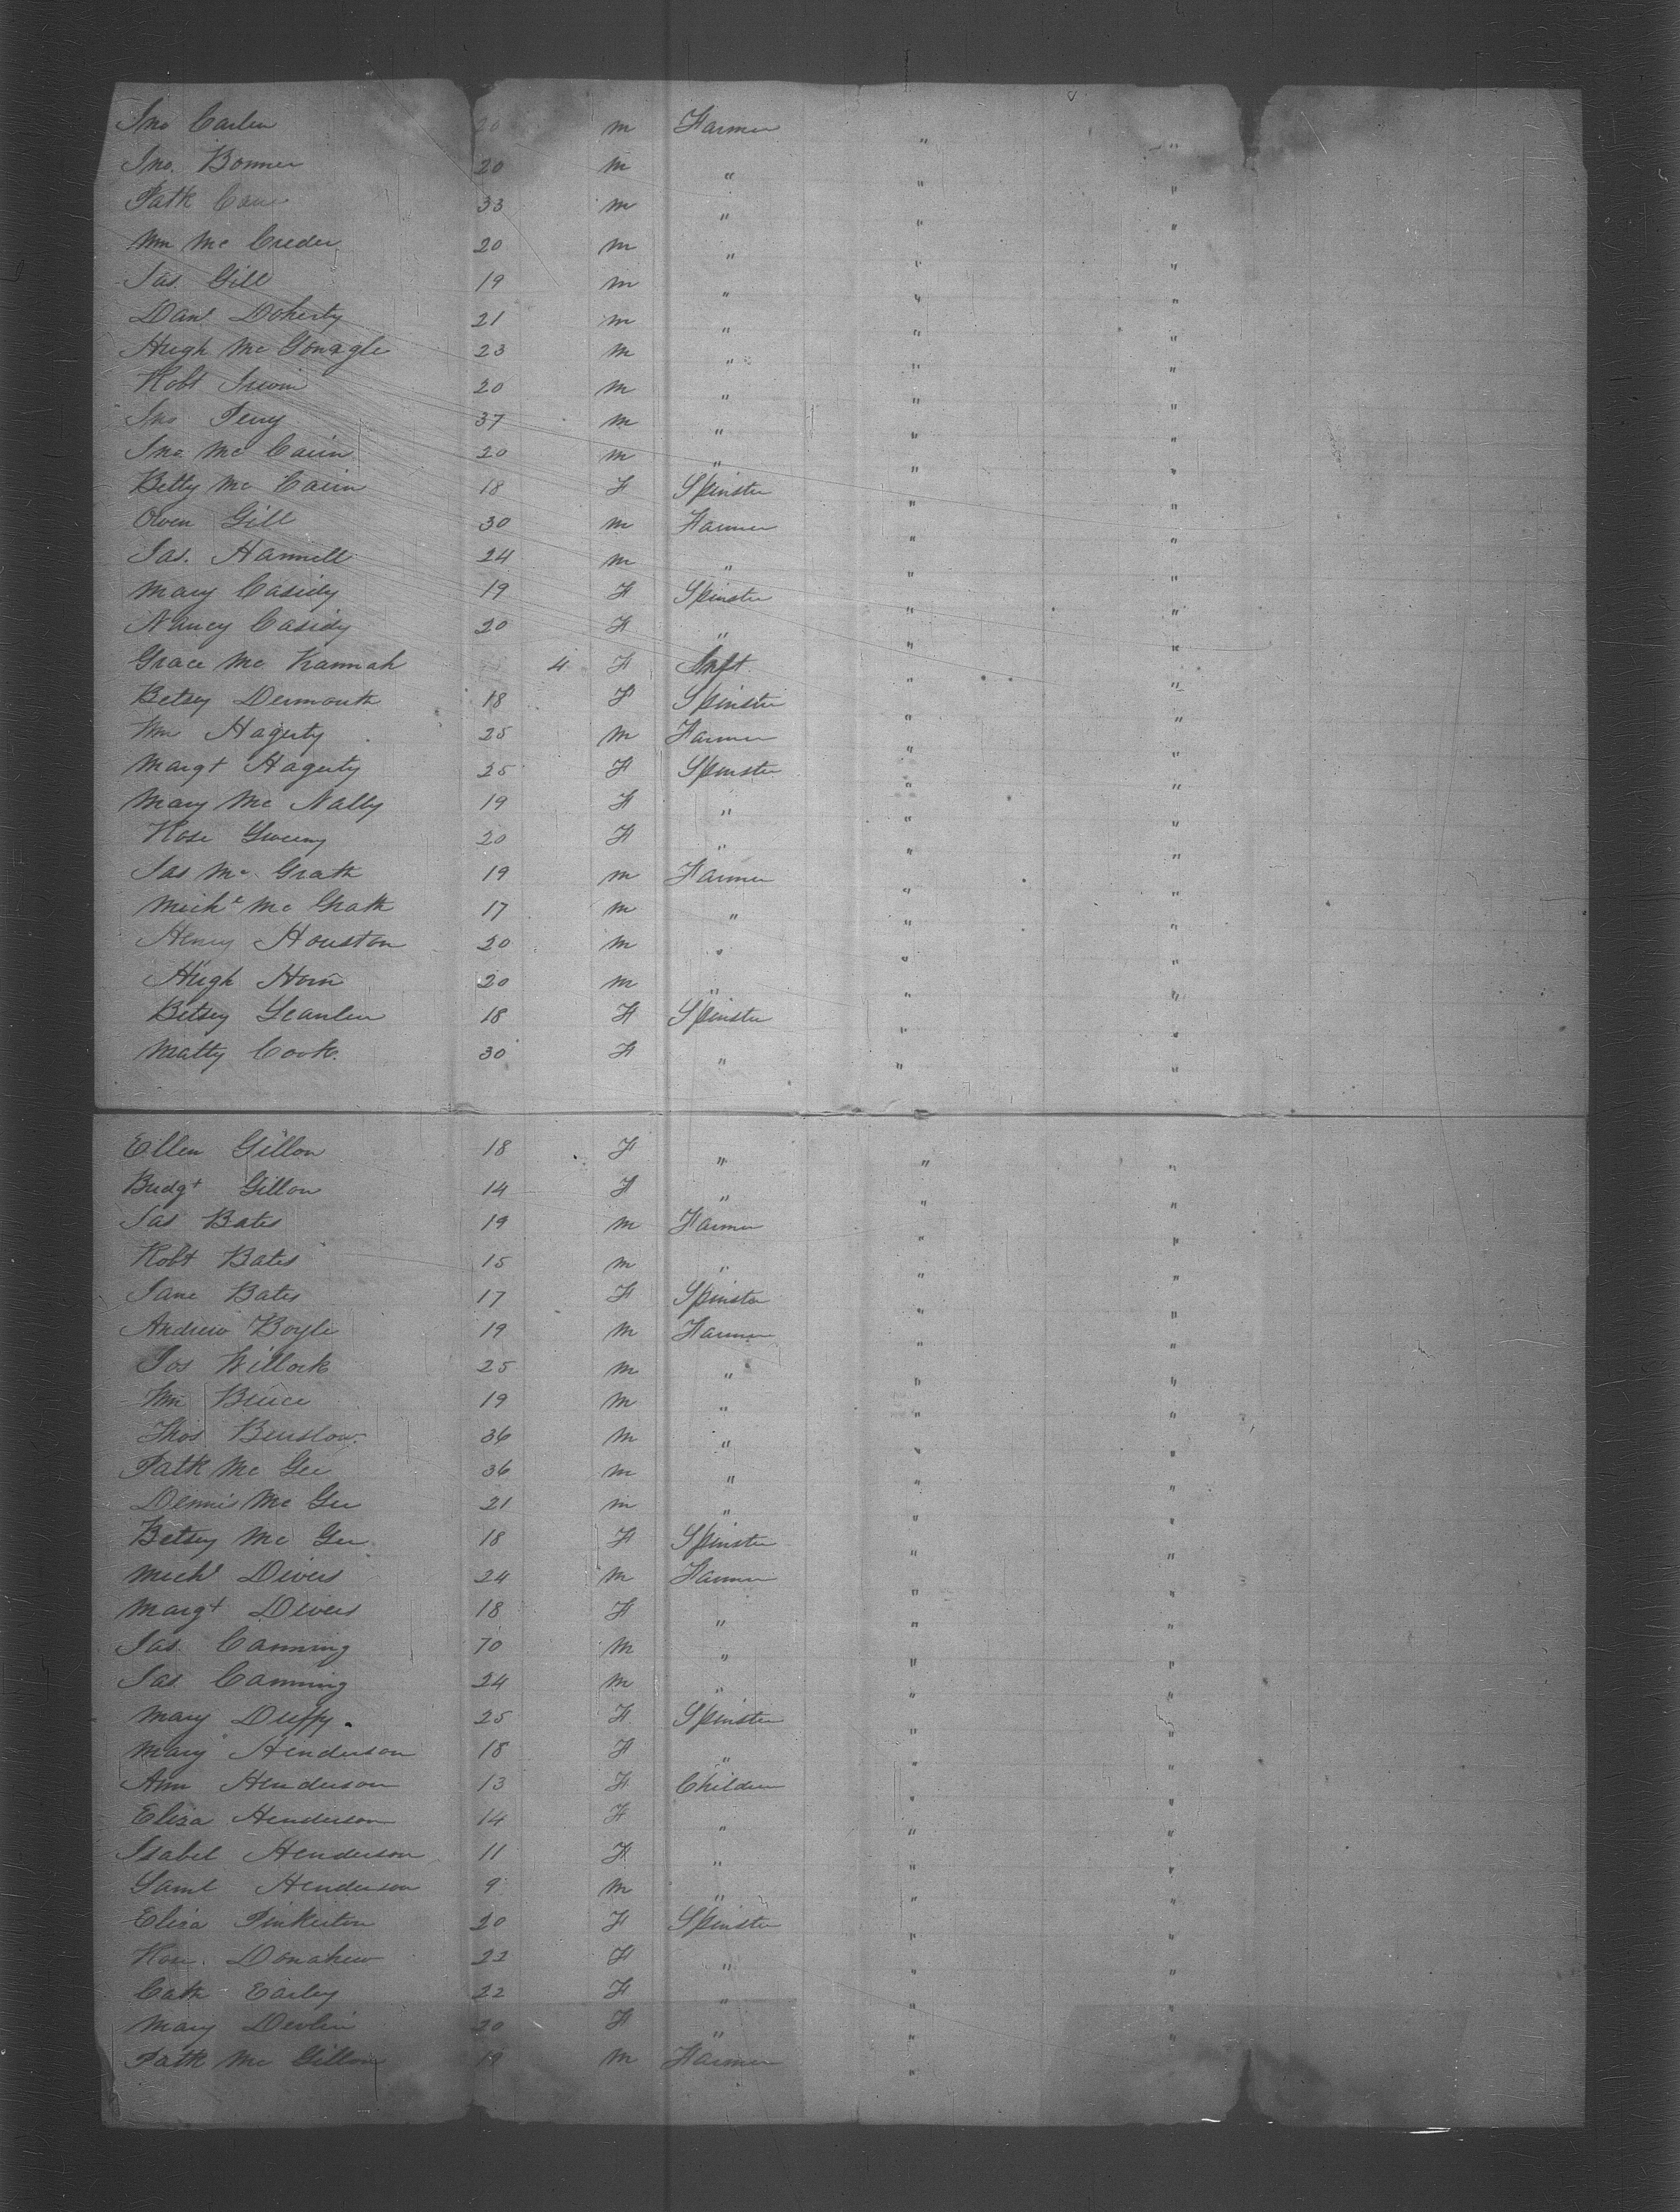 Jno Carlin 20 m Farmer " "
Jno. Bonner 20 m " " "
Patk Cane 33 m " " "
Wm Mc Creder 20 m " " "
Jas. Gill 19 m " " "
Danl Doherty 21 m " " "
Hugh Mc Gonagle 23 m " " "
Robt Irwin 20 m " " "
Jno Perry 37 m " " "
Jno Mc Cairn 20 m " " "
Betty Mc Cairn 18 F Spinster " "
Owen Gill 30 m Farmer " "
Jas. Hannell 24 m " " "
Mary Casidy 19 F Spinster " "
Nancy Casidy 20 F " " "
Grace Mc Kannah 4 F Inft " "
Betsey Dermouth 18 F Spinster " "
Wm Hagerty 25 m Farmer " "
Margt Hagerty 25 F Spinster " "
Mary Mc Nally 19 F " " "
Rose Sweeny 20 F " " "
Jas Mc Grath 19 m Farmer " "
Michl Mc Grath 17 m " " "
Henry Houston 20 m " " "
Hugh Horn 20 m " " "
Betsey Scanlen 18 F Spinster " "
Matty Cook. 30 F " " "
Ellen Gillon 18 F " " "
Bridgt Gillon 14 F " " "
Jas Bates 19 m Farmer " "
Robt Bates 15 m " " "
Jane Bates 17 F Spinster " "
Andrew Boyle 19 m Farmer " "
Jos Willock 25 m " " "
Wm Bruce 19 m " " "
Thos Benslow. 36 m " " "
Patk Mc Gee 36 m " " "
Dennis Mc Gee 21 m " " "
Betsey Mc Gee 18 F Spinster " "
Michl Divers 24 m Farmer " "
Margt Divers 18 F " " "
Jas. Canning 70 m " " "
Jas Canning 24 m " " "
Mary Duffy. 25 F Spinster " "
Mary Henderson 18 F " " "
Ann Henderson 13 F Children " "
Eliza Henderson 14 F " " "
Isabel Henderson 11 F " " "
Saml Henderson 9 m " " "
Eliza Pinkerton 20 F Spinster " "
Donahew 22 F " " "
Cath Earley 22 F " " "
Mary Devlin 20 F " " "
Patk Mc Gillon 19 m Farmer "